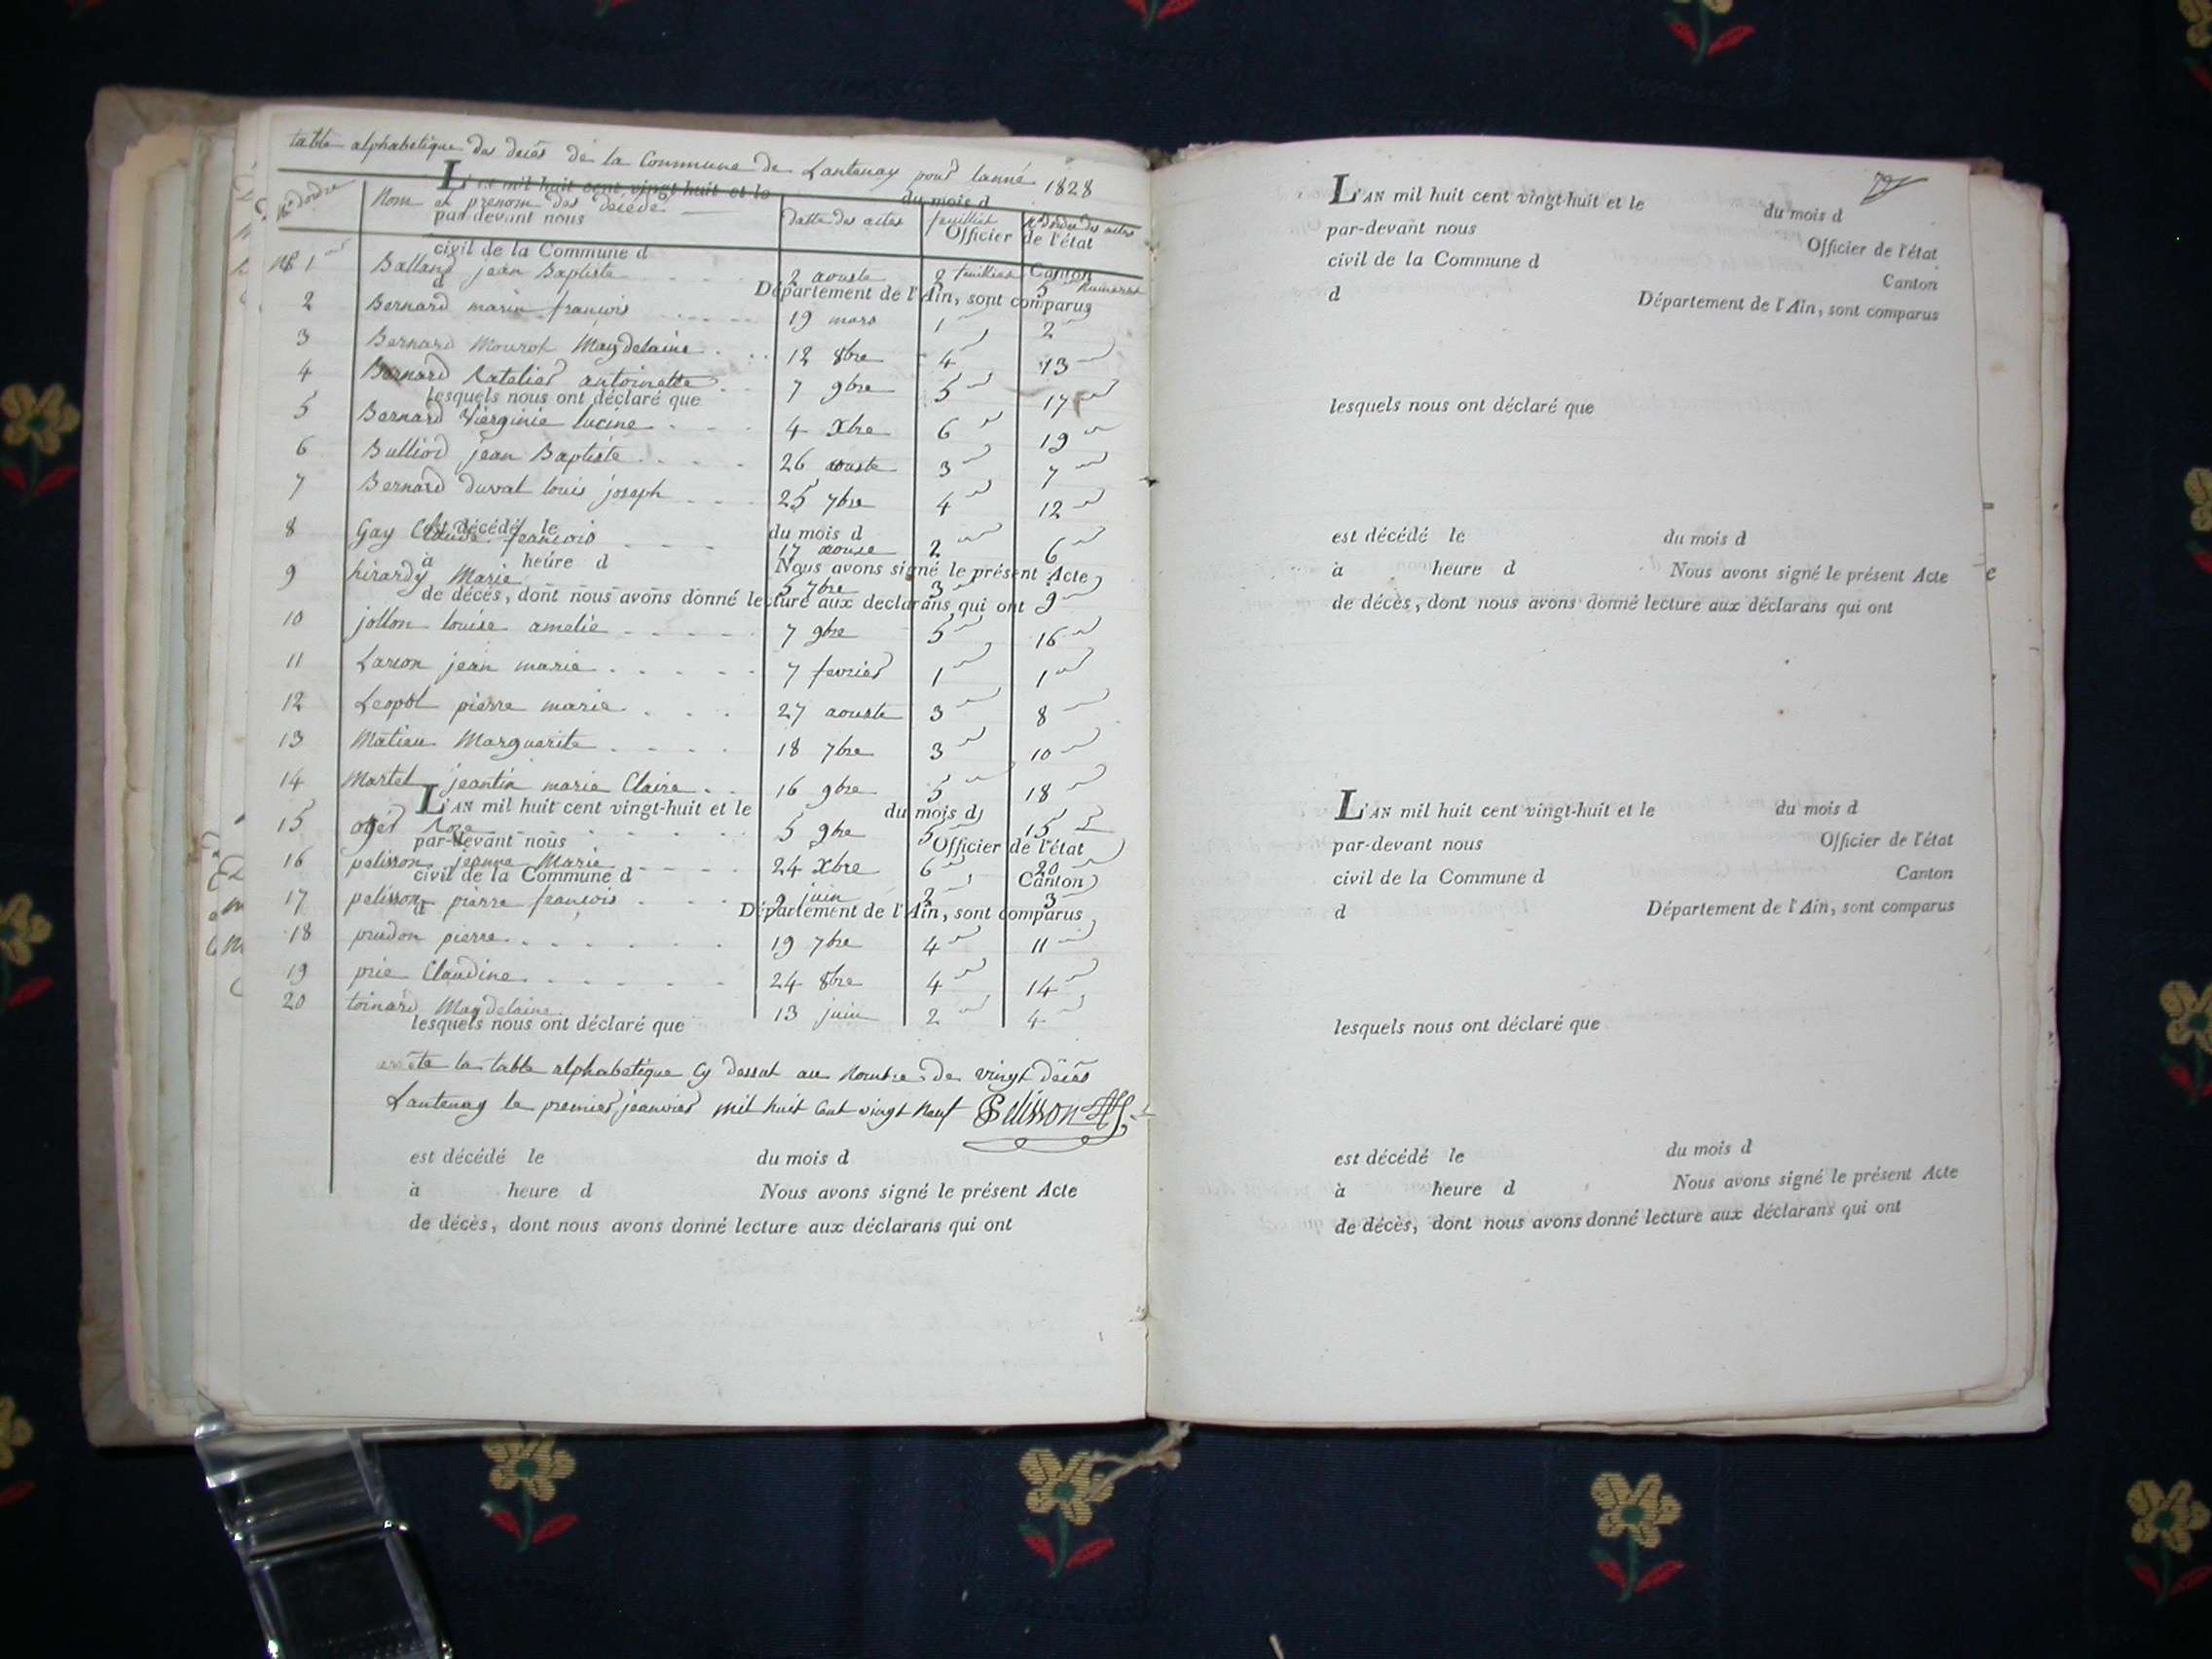 table alphabetique des decés de la Commune de Lantenay pour lanné 1828
L'AN mil huit cent vingt-huit et le du mois d
No dordre Nom et prenom des décédé datte des actes feuillet No dordre des actes
par-devant nous Officier de l'état
civil de la Commune d Canton
No 1 Balland jean Baptiste 2 aouste 2 feuillet 5 Numeros
d Département de l'Ain, sont comparus
2 Bernard marin françois 19 mars 1 2
3 Bernard Mourot Magdelaine 12 8bre 4 13
4 Bernard Ratelier antoinette 7 9bre 5 17
lesquels nous ont déclaré que
5 Bernard Vierginie lucine 4 Xbre 6 19
6 Bulliod jean Baptiste 26 aouste 3 7
7 Bernard duval louis joseph 25 7bre 4 12
est décédé le du mois d
8 Gay Claude françois 17 aouse 2 6
à heure d Nous avons signé le présent Acte
9 hirardy Marie 5 7bre 3 9
de décès, dont nous avons donné lecture aux déclarans qui ont
10 jollon louise amelie 7 9bre 5 16
11 Larion jean marie 7 fevrier 1 1
12 Leopol pierre marie 27 aouste 3 8
13 Matieu Marguerite 18 7bre 3 10
14 Martel jeantin marie Claire 16 9bre 5 18
L'AN mil huit cent vingt-huit et le du mois d
15 oger Roze 5 9bre 5 15
par-devant nous Officier de l'état
16 pelisson jeanne Marie 24 Xbre 6 20
civil de la Commune d Canton
17 pelisson pierre françois 9 juin 2 3
d Département de l'Ain, sont comparus
18 prudon pierre 19 7bre 4 11
19 prie Claudine 24 8bre 4 14
20 toinard Magdelaine 13 juin 2 4
lesquels nous ont déclaré que
arrête la table alphabetique cy dessut au Nombre de vingt décés
Lantenay le premier jeanvier mil huit Cent vingt Neuf Pelisson
est décédé le du mois d
à heure d Nous avons signé le présent Acte
de décès, dont nous avons donné lecture aux déclarans qui ont
L'AN mil huit cent vingt-huit et le du mois d
par-devant nous Officier de l'état
civil de la Commune d Canton
d Département de l'Ain, sont comparus
lesquels nous ont déclaré que
est décédé le du mois d
à heure d Nous avons signé le présent Acte
de décès, dont nous avons donné lecture aux déclarans qui ont
L'AN mil huit cent vingt-huit et le du mois d
par-devant nous Officier de l'état
civil de la Commune d Canton
d Département de l'Ain, sont comparus
lesquels nous ont déclaré que
est décédé le du mois d
à heure d Nous avons signé le présent Acte
de décès, dont nous avons donné lecture aux déclarans qui ont